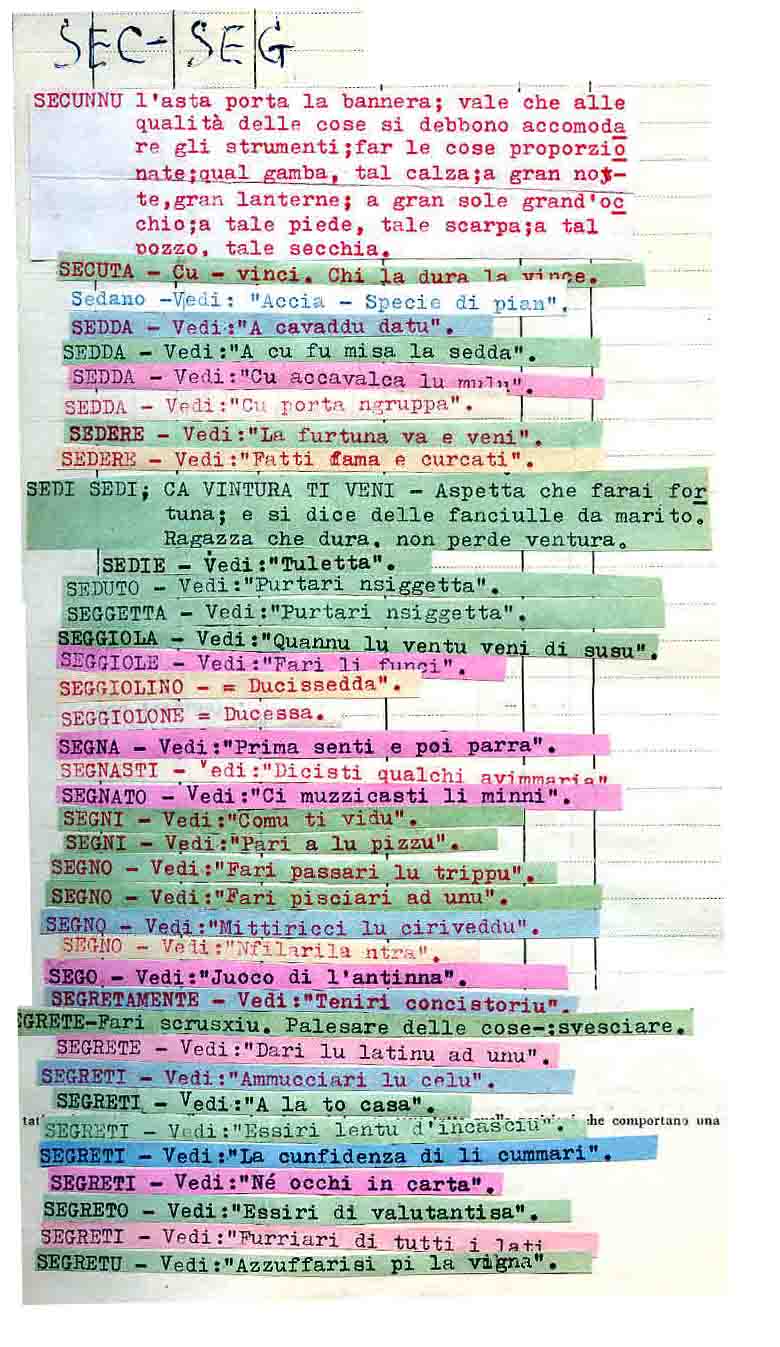 SEC-SEG
SECUNNU l'asta porta la bannera; vale che alle
qualità delle cose si debbono accomoda
re gli strumenti;far le cose proporzio
nate;qual gamba, tal calza;a gran not-
te,gran lanterne; a gran sole grand'oc
chio;a tale piede, tale scarpa;a tal
pozzo, tale secchia.
SECUTA - Cu - vinci. Chi la dura la vince.
Sedano -Vedi: "Accia - Specie di pian".
SEDDA - Vedi:"A cavaddu datu".
SEDDA - Vedi:"A cu fu misa la sedda".
SEDDA - Vedi:"Cu accavalca lu mulu".
SEDDA - Vedi:"Cu porta ngruppa".
SEDERE - Vedi:"La furtuna va e veni".
SEDERE - Vedi:"Fatti fama e curcati".
SEDI SEDI; CA VINTURA TI VENI - Aspetta che farai for
tuna; e si dice delle fanciulle da marito.
Ragazza che dura, non perde ventura.
SEDIE - Vedi:"Tuletta".
SEDUTO - Vedi:"Purtari nsiggetta".
SEGGETTA - Vedi:"Purtari nsiggetta".
SEGGIOLA - Vedi:"Quannu lu ventu veni di susu".
SEGGIOLE - Vedi:"Fari li funci".
SEGGIOLINO - = Ducissedda".
SEGGIOLONE = Ducessa.
SEGNA - Vedi:"Prima senti e poi parra".
SEGNASTI - Vedi:"Dicisti qualchi avimmaria"
SEGNATO - Vedi:"Ci muzzicasti li minni".
SEGNI - Vedi:"Comu ti vidu".
SEGNI - Vedi:"Pari a lu pizzu".
SEGNO - Vedi:"Fari passari lu trippu".
SEGNO - Vedi:"Fari pisciari ad unu".
SEGNO - Vedi:"Mittiricci lu ciriveddu".
SEGNO - Vedi:"Nfilarila ntra".
SEGO - Vedi:"Juoco di l'antinna".
SEGRETAMENTE - Vedi:"Teniri concistoriu".
EGRETE-Fari scrusxiu. Palesare delle cose-:svesciare.
SEGRETE - Vedi:"Dari lu latinu ad unu".
SEGRETI - Vedi:"Ammucciari lu celu".
SEGRETI - Vedi:"A la to casa".
tat he comportano una
SEGRETI - Vedi:"Essiri lentu d'incasciu".
SEGRETI - Vedi:"La cunfidenza di li cummari".
SEGRETI - Vedi:"Né occhi in carta".
SEGRETO - Vedi:"Essiri di valutantisa".
SEGRETI - Vedi:"Furriari di tutti i lati
SEGRETU - Vedi:"Azzuffarisi pi la vigna".